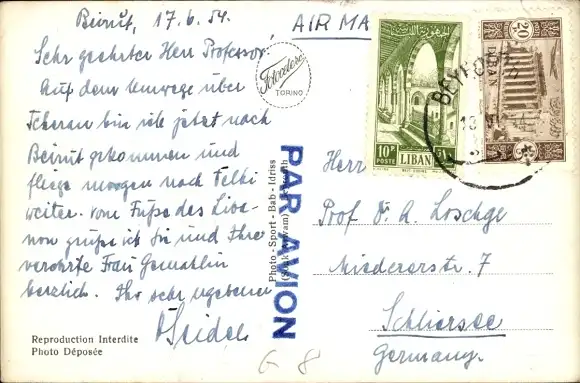 Beirut, 17.6.54.
AIR MA
Sehr geehrter Herr Professor,
Auf dem Umwege über
Teheran bin ich jetzt nach
Beirut gekommen und
fliege morgen nach
weiter. Vom Fuße des Liba-
non grüße ich Sie und Ihre
verehrte Frau Gemahlin
herzlich. Ihr sehr ergebener
Seidel
Reproduction Interdite
Photo Déposée
Fotocelere
TORINO
PAR AVION
Photo - Sport - Bab - Idriss
10P
POSTE
LIBAN
20P
LIBAN
BEYROUTH
Herr
Prof. Dr. A. Loschge
Niedererstr. 7
Schliersee
Germany.
G 8